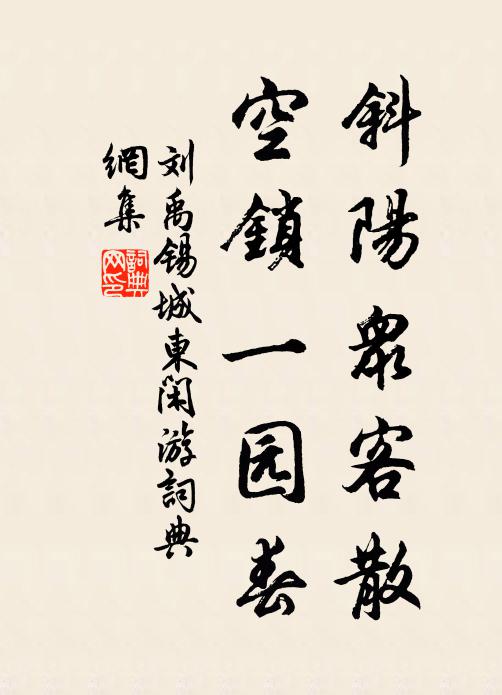 斜陽眾客散
空鎖一园春
刘禹锡城東闲游詞典
網集
詞典
网印